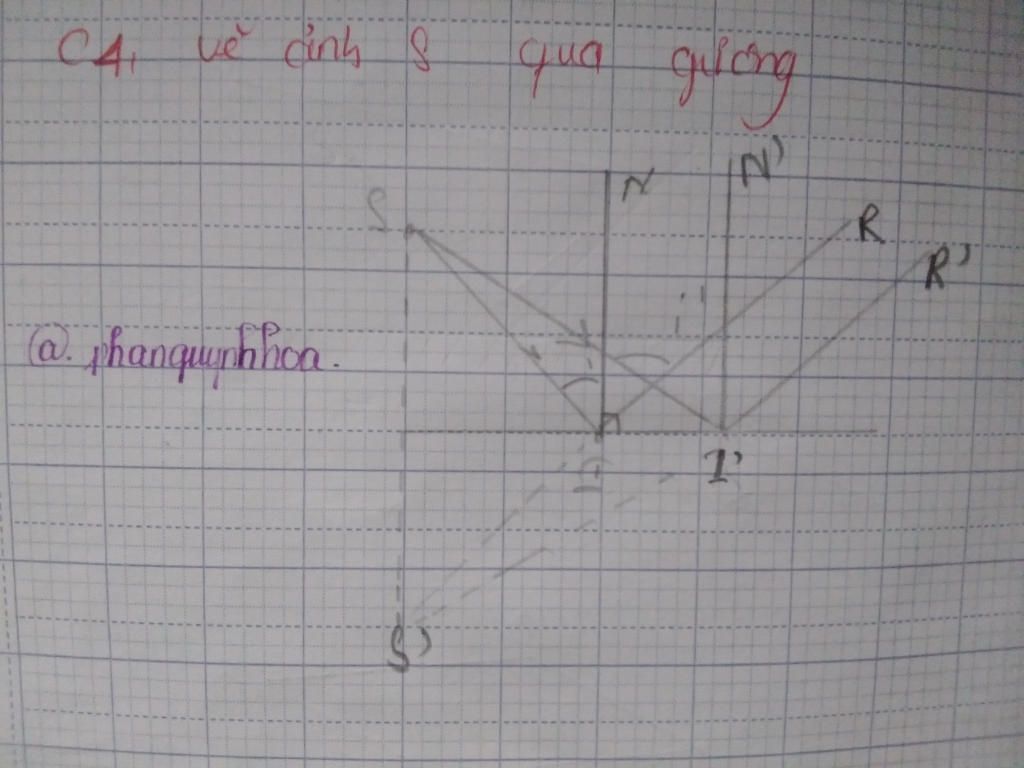 C4, vẽ ảnh S qua gương
N
N'
S
R
R'
@. phanquynhhoa.
i i'
I
I'
S'